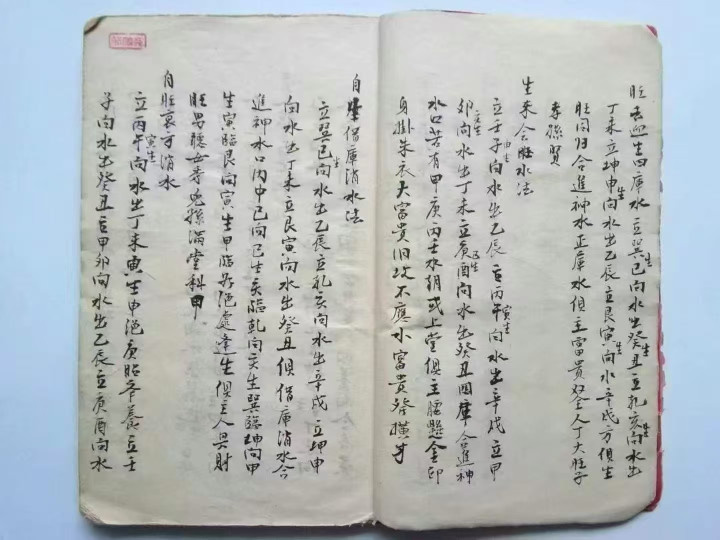 旺去迎生四庫水立巽巳向水出癸丑立乹亥向水出
丁未立坤申向水出乙辰立艮寅向水辛戌方俱生
旺同归合進神水正庫水俱主富贵双全人丁大旺子
孝孫賢
生来会旺水法
立壬子向水出乙辰立丙午向水出辛戌立甲
卯向水出丁未立庚酉向水出癸丑四庫合進神
水口若有甲庚丙壬水朝或上堂俱主腰懸金印
身掛朱衣大富貴旧坟不應小富貴發横才
自生借庫消水法
立巽巳向水出乙辰立乹亥向水出辛戌立坤申
向水出丁未立艮寅向水出癸丑俱借庫消水合
進神水口内中巳向巳生亥臨乹向亥生巽臨坤向申
生寅臨艮向寅生甲臨絶處逢生俱主人興財
旺男聰女秀兒孫滿堂科甲
自旺衰方消水
立丙午向水出丁未寅生申絶庚胎辛養立壬
子向水出癸丑立甲卯向水出乙辰立庚酉向水